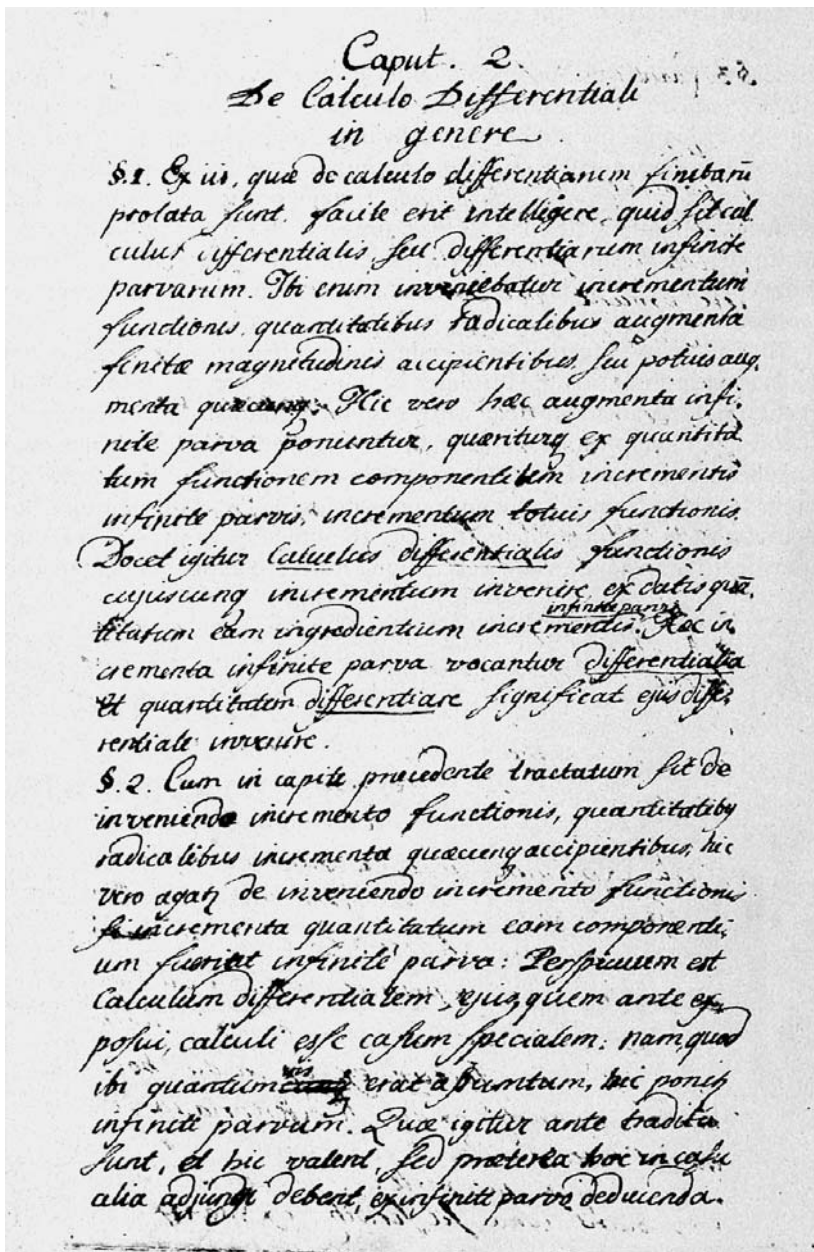 Caput. 2.
De Calculo Differentiali
in genere
§.1. Ex iis, quæ de calculo differentiarum finitarū
prolata sunt. facile erit intelligere, quid sit cal
culus differentialis, seu differentiarum infinite
parvarum. Ibi enim inveniebatur incrementum
functionis, quantitatibus radicalibus augmenta
finitæ magnitudinis accipientibus, seu potius aug-
menta quæcunq; Hic vero hæc augmenta infi-
nite parva ponuntur, quæriturq ex quantita
tum functionem componentium incrementis
infinite parvis, incrementum totius functionis.
Docet igitur Calculus differentialis functionis
cujuscunq incrementum invenire, ex datis quā-
infinite parvis
titatum eam ingredientium incrementis. Hæc in
crementa infinite parva vocantur differentialia
Et quantitatem differentiare significat ejus diffe-
rentiale invenire.
§.2. Cum in capite præcedente tractatum sit de
inveniendo incremento functionis, quantitatibq
radicalibus incrementa quæcunq accipientibus, hic
vero agatʒ de inveniendo incremento functionis
si incrementa quantitatum eam componenti,
um fuerint infinite parva: Perspicuum est
Calculum differentialem, ejus, quem ante ex-
posui, calculi esse casum specialem: nam quod
ibi quantum vis erat assumtum, hic ponitʒ
infinite parvum. Quæ igitur ante tradita
sunt, et hic valent, sed præterea hoc in casu
alia adjungi debent, ex infinite parvo deducenda.